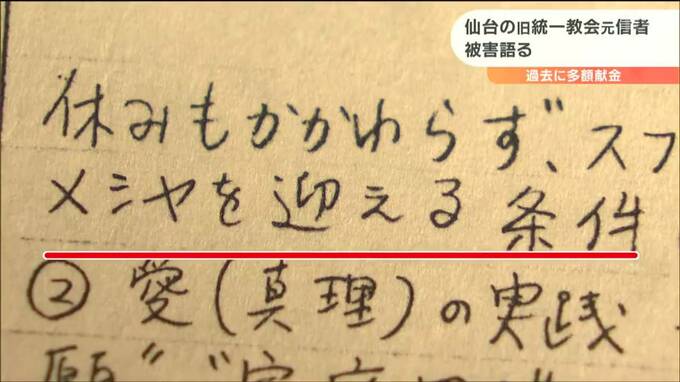 仙台の旧統一教会元信者
被害語る
過去に多額献金
休みもかかわらず、スフ
メシヤを迎える条件
②愛(真理)の実践
願”“家庭